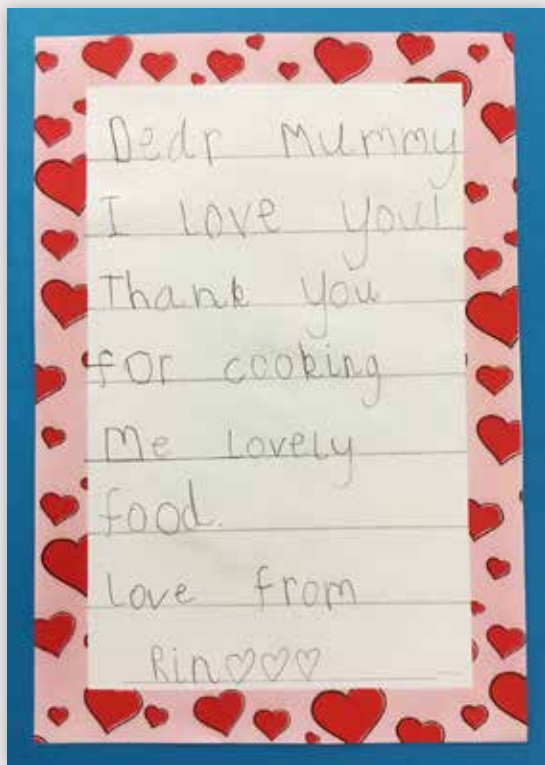 Dear Mummy
I love you!
Thank you
for cooking
Me lovely
food.
love from
Rin♡♡♡